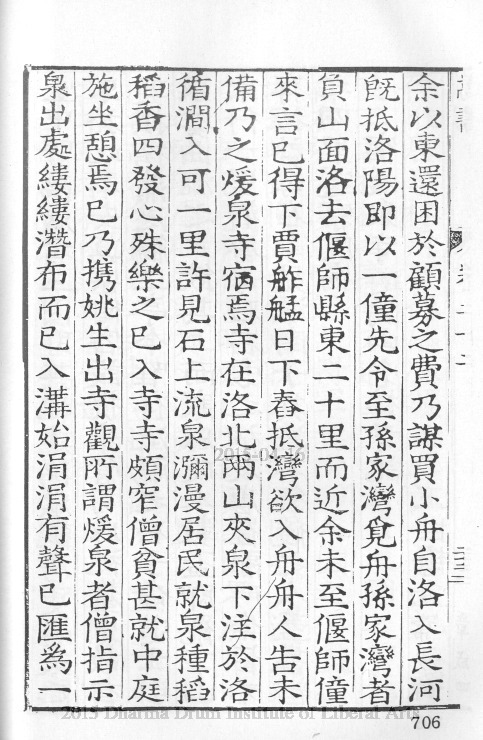 余以東還困於顧募之費乃謀買小舟自洛入長河
旣抵洛陽即以一僮先令至孫家灣覓舟孫家灣者
負山面洛去偃師縣東二十里而近余未至偃師僮
來言已得下賈舴艋日下舂抵灣欲入舟舟人告未
備乃之煖泉寺宿焉寺在洛北兩山夾泉下注於洛
循澗入可一里許見石上流泉瀰漫居民就泉種稻
稻香四發心殊樂之已入寺寺頗窄僧貧甚就中庭
施坐憩焉已乃携姚生出寺觀所謂煖泉者僧指示
泉出處縷縷潛布而已入溝始涓涓有聲已匯爲一
706
2013-01-16
2013 Dharma Drum Institute of Liberal Arts